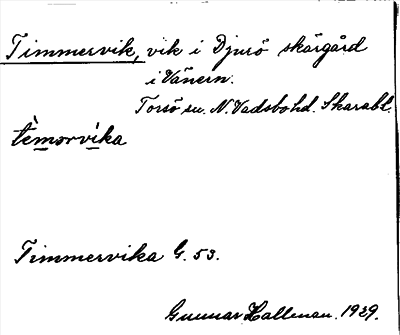 Timmervik, vik i Djurö skärgård
i Vänern.
Torsö sn. N. Vadsbo hd. Skarabl.
tèmərvíka
Timmervika G. 53.
Gunnar Hallman. 1939.